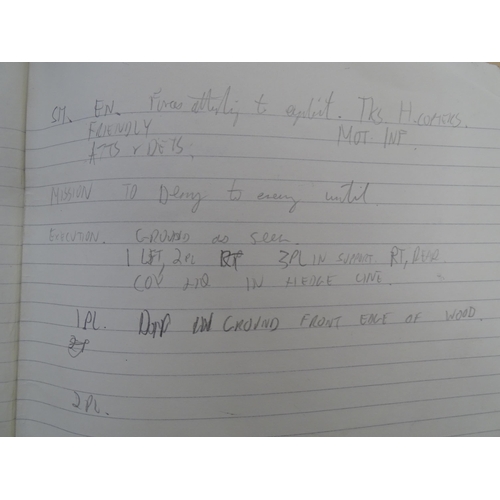 SIT. EN. Forces attempting to exploit. TKS. H.COPTERS.
FRIENDLY MOT. INF.
ATTS & DETS.
MISSION TO Deny to enemy until
EXECUTION. GROUND as seen.
1 LFT, 2 PL RT 3 PL IN SUPPORT RT, REAR.
COY HQ IN HEDGE LINE.
1 PL. DTP IN GROUND FRONT EDGE OF WOOD.
2 PL.